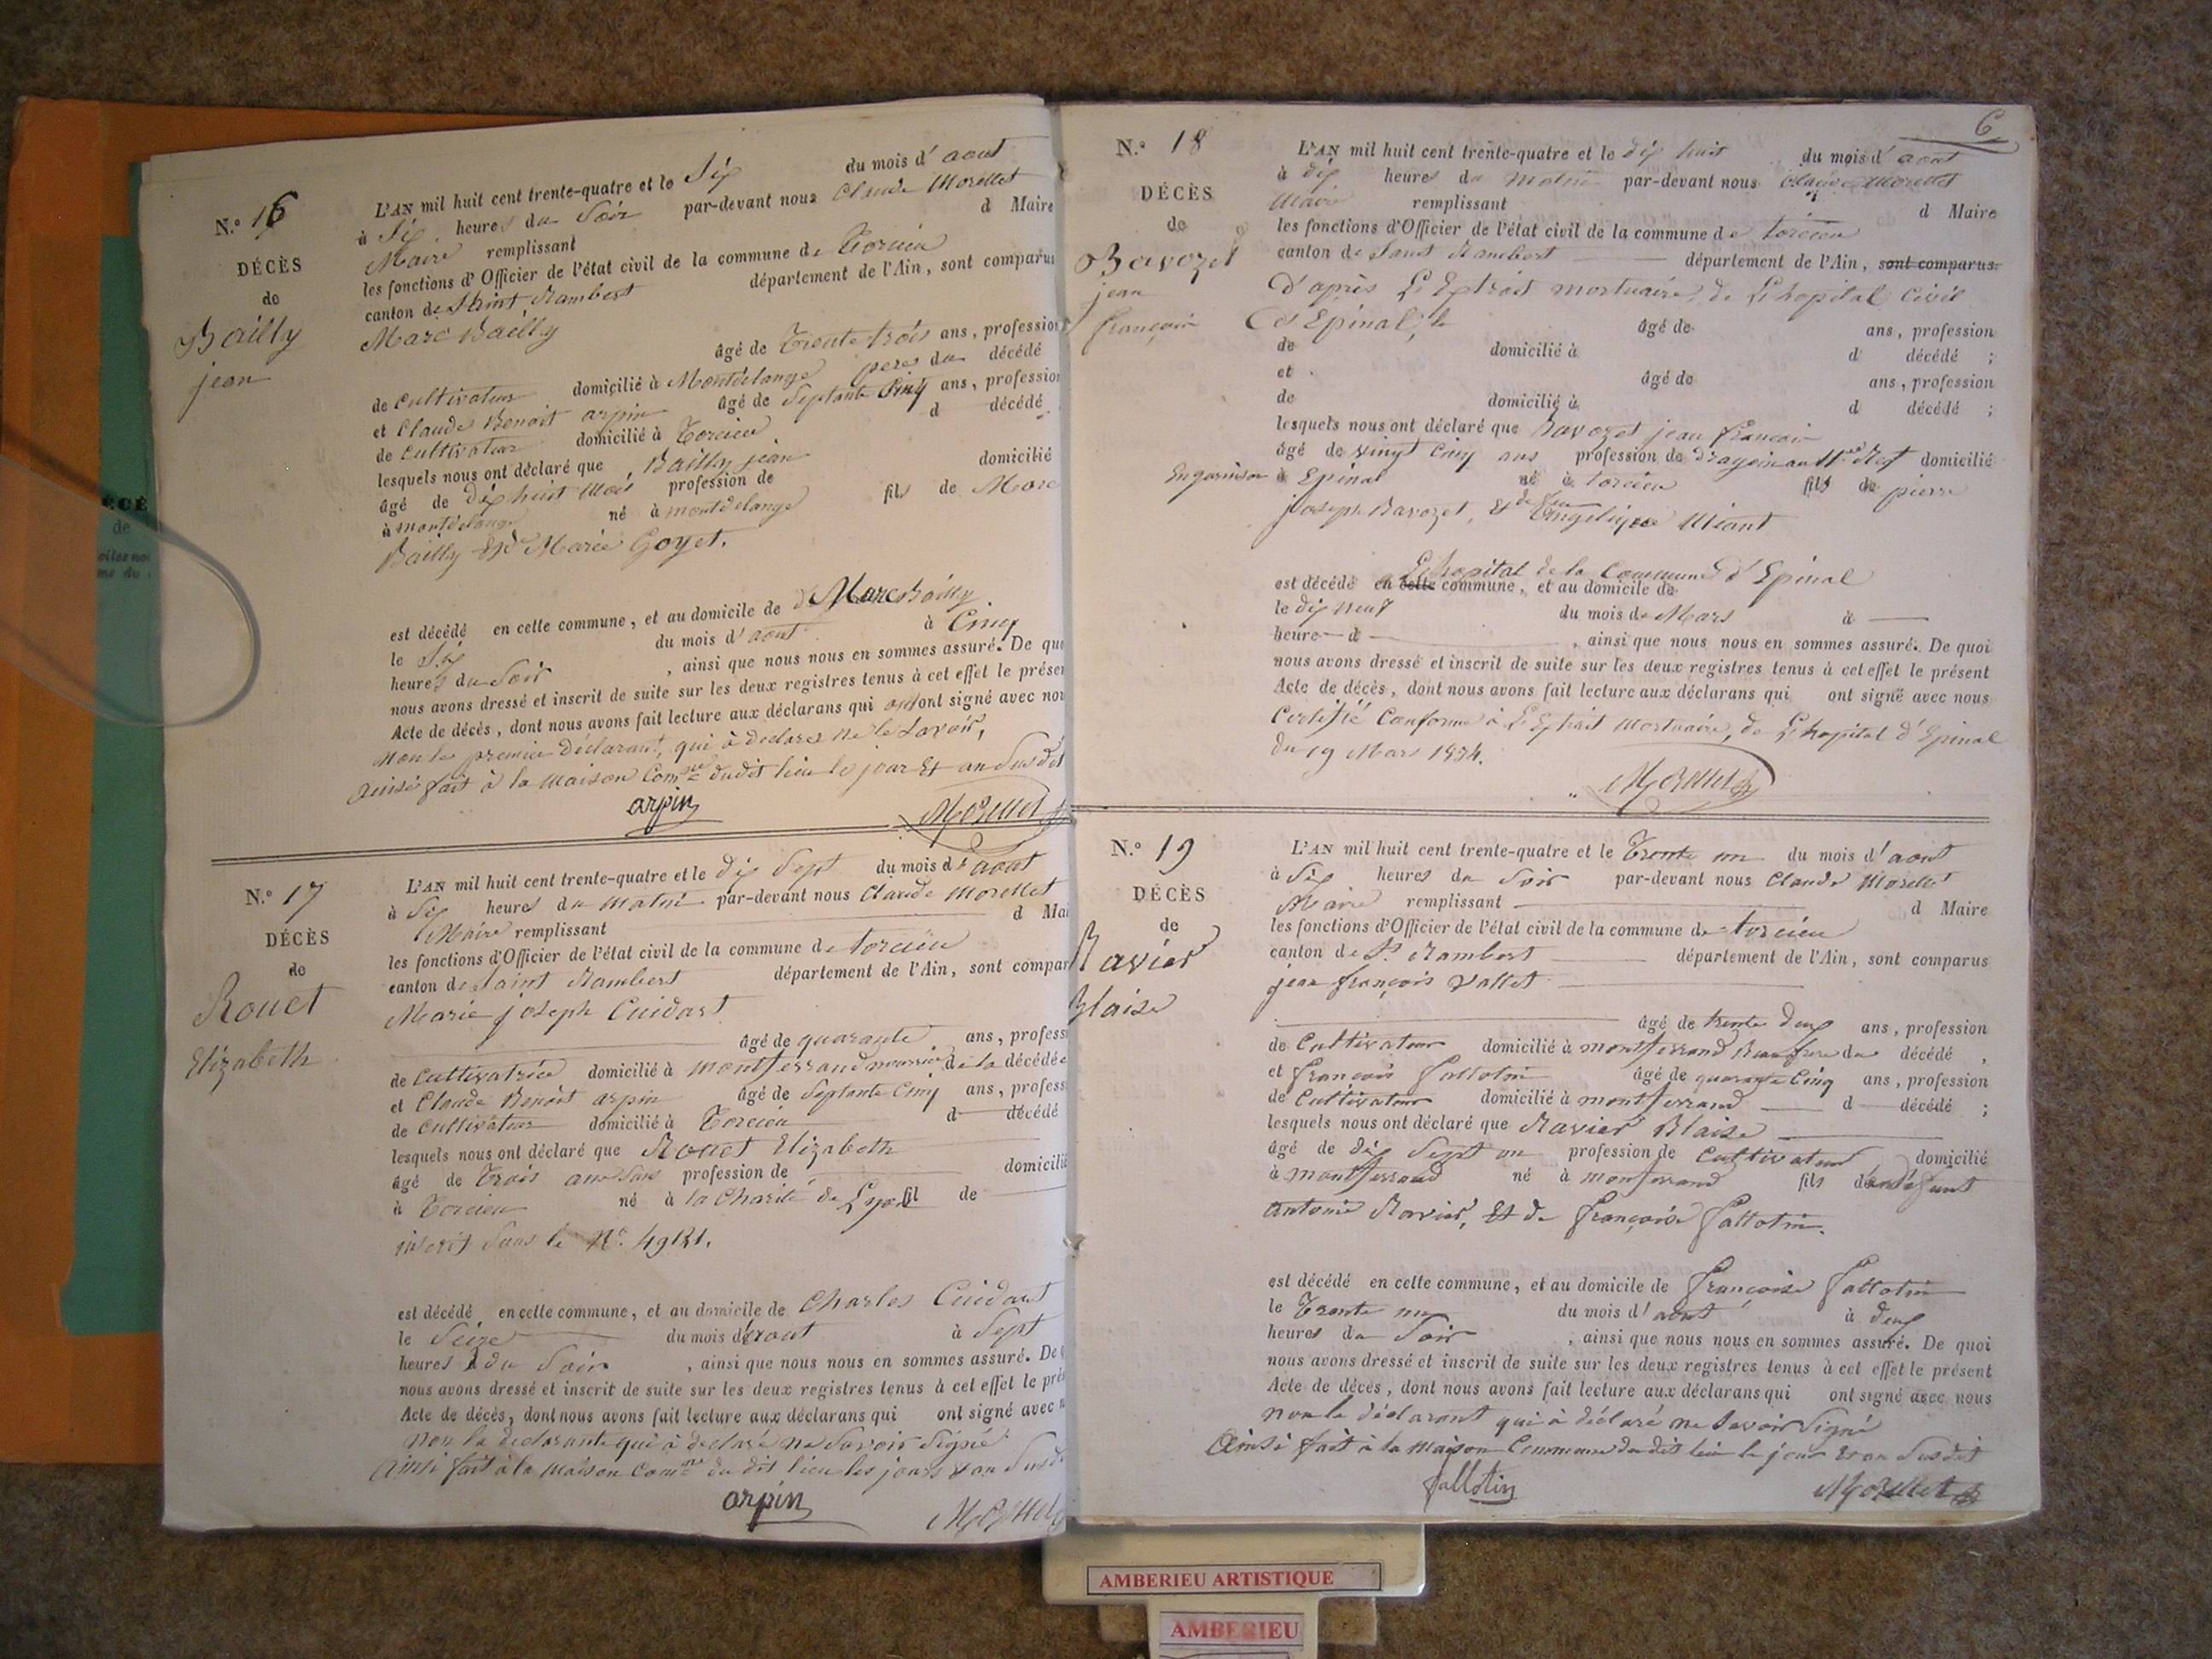 N.° 16
DÉCÈS
de
Bailly
jean
L'AN mil huit cent trente-quatre et le Six du mois d'aout
à Six heures du Soir par-devant nous Claude Morellet
Maire remplissant d Maire
les fonctions d'Officier de l'état civil de la commune de Torcieu
canton de Saint Rambert département de l'Ain, sont comparus
Marc Bailly
âgé de Trente trois ans, profession
de cultivateur domicilié à Montdelange pere du décédé
et Claude Benoit arpin âgé de Septante Cinq ans, profession
de cultivateur domicilié à Torcieu d décédé
lesquels nous ont déclaré que Bailly jean
âgé de dix huit mois profession de domicilié
à montdelange né à montdelange fils de Marc
Bailly Et de Marie Goyet.
est décédé en cette commune, et au domicile de Marc Bailly
le Six du mois d'aout à Cinq
heures du Soir, ainsi que nous nous en sommes assuré. De quoi
nous avons dressé et inscrit de suite sur les deux registres tenus à cet effet le présen
Acte de décès, dont nous avons fait lecture aux déclarans qui ont signé avec nou
non le premier declarant, qui à declarer ne le Savoir,
ainsi fait à la maison Comne dudit lieu le jour Et an Susdit
arpin Morellet
N.° 17
DÉCÈS
de
Rouet
Elizabeth
L'AN mil huit cent trente-quatre et le dix Sept du mois d'aout
à Six heures du matin par-devant nous Claude Morellet
Maire remplissant d Mai
les fonctions d'Officier de l'état civil de la commune de torcieu
canton de Saint Rambert département de l'Ain, sont compar
Marie joseph Cuidart
âgé de quarante ans, profess
de cultivatrice domicilié à montferrand nourrice de la décédée
et Claude Benoit arpin âgé de Septante Cinq ans, profess
de cultivateur domicilié à Torcieu d décédé
lesquels nous ont déclaré que Rouet Elizabeth
âgé de Trois ans profession de domicilié
à Torcieu né à la Charité de Lyon fil de
inscrit Sous le N°. 49181.
est décédé en cette commune, et au domicile de Charles Cuidart
le Seize du mois d'aout à Sept
heures du Soir, ainsi que nous nous en sommes assuré. De q
nous avons dressé et inscrit de suite sur les deux registres tenus à cet effet le prés
Acte de décès, dont nous avons fait lecture aux déclarans qui ont signé avec n
non la declarante qui à declaré ne Savoir Signé
Ainsi fait à la maison Comne du dit lieu les jours & an Susd
arpin Morellet
6
N.° 18
DÉCÈS
de
Bavozet
jean
françois
L'AN mil huit cent trente-quatre et le dix huit du mois d'aout
à dix heures du matin par-devant nous Claude Morellet
Maire remplissant d Maire
les fonctions d'Officier de l'état civil de la commune de torcieu
canton de Saint Rambert département de l'Ain, sont comparus
d'après L'Extrait mortuaire, de L'hopital Civil
d'Epinal, âgé de ans, profession
de domicilié à d décédé ;
et âgé de ans, profession
de domicilié à d décédé ;
lesquels nous ont déclaré que Bavozet jean françois
âgé de vingt Cinq ans profession de dragon au 11me Regt domicilié
En garnison à Epinal né à torcieu fils de pierre
joseph Bavozet, Et de Angelique Miant
est décédé en cette commune, et au domicile de L'hopital de la Commune d'Epinal
le dix neuf du mois de Mars à
heure d, ainsi que nous nous en sommes assuré. De quoi
nous avons dressé et inscrit de suite sur les deux registres tenus à cet effet le présent
Acte de décès, dont nous avons fait lecture aux déclarans qui ont signé avec nous
Certifié Conforme à L'Extrait Mortuaire, de L'hopital d'Epinal
du 19 Mars 1834.
Morellet
N.° 19
DÉCÈS
de
Ravier
Blaise
L'AN mil huit cent trente-quatre et le Trente un du mois d'aout
à Six heures du Soir par-devant nous Claude Morellet
Maire remplissant d Maire
les fonctions d'Officier de l'état civil de la commune de torcieu
canton de St. Rambert département de l'Ain, sont comparus
jean françois Vallet
âgé de trente deux ans, profession
de Cultivateur domicilié à montferrand Beau frere du décédé ,
et françois fallotin âgé de quarante Cinq ans, profession
de Cultivateur domicilié à montferrand d décédé ;
lesquels nous ont déclaré que Ravier Blaise
âgé de dix Sept an profession de Cultivateur domicilié
à montferrand né à monferrand fils de défunt
antoine Ravier, Et de françoise fallotin.
est décédé en cette commune, et au domicile de françoise fallotin
le Trente un du mois d'aout à deux
heures du Soir, ainsi que nous nous en sommes assuré. De quoi
nous avons dressé et inscrit de suite sur les deux registres tenus à cet effet le présent
Acte de décès, dont nous avons fait lecture aux déclarans qui ont signé avec nous
non le déclarant qui à déclaré ne Savoir Signé
Ainsi fait à la Maison Commune du dit lieu le jour & an Susdit
fallotin Morellet
AMBERIEU ARTISTIQUE
AMBERIEU